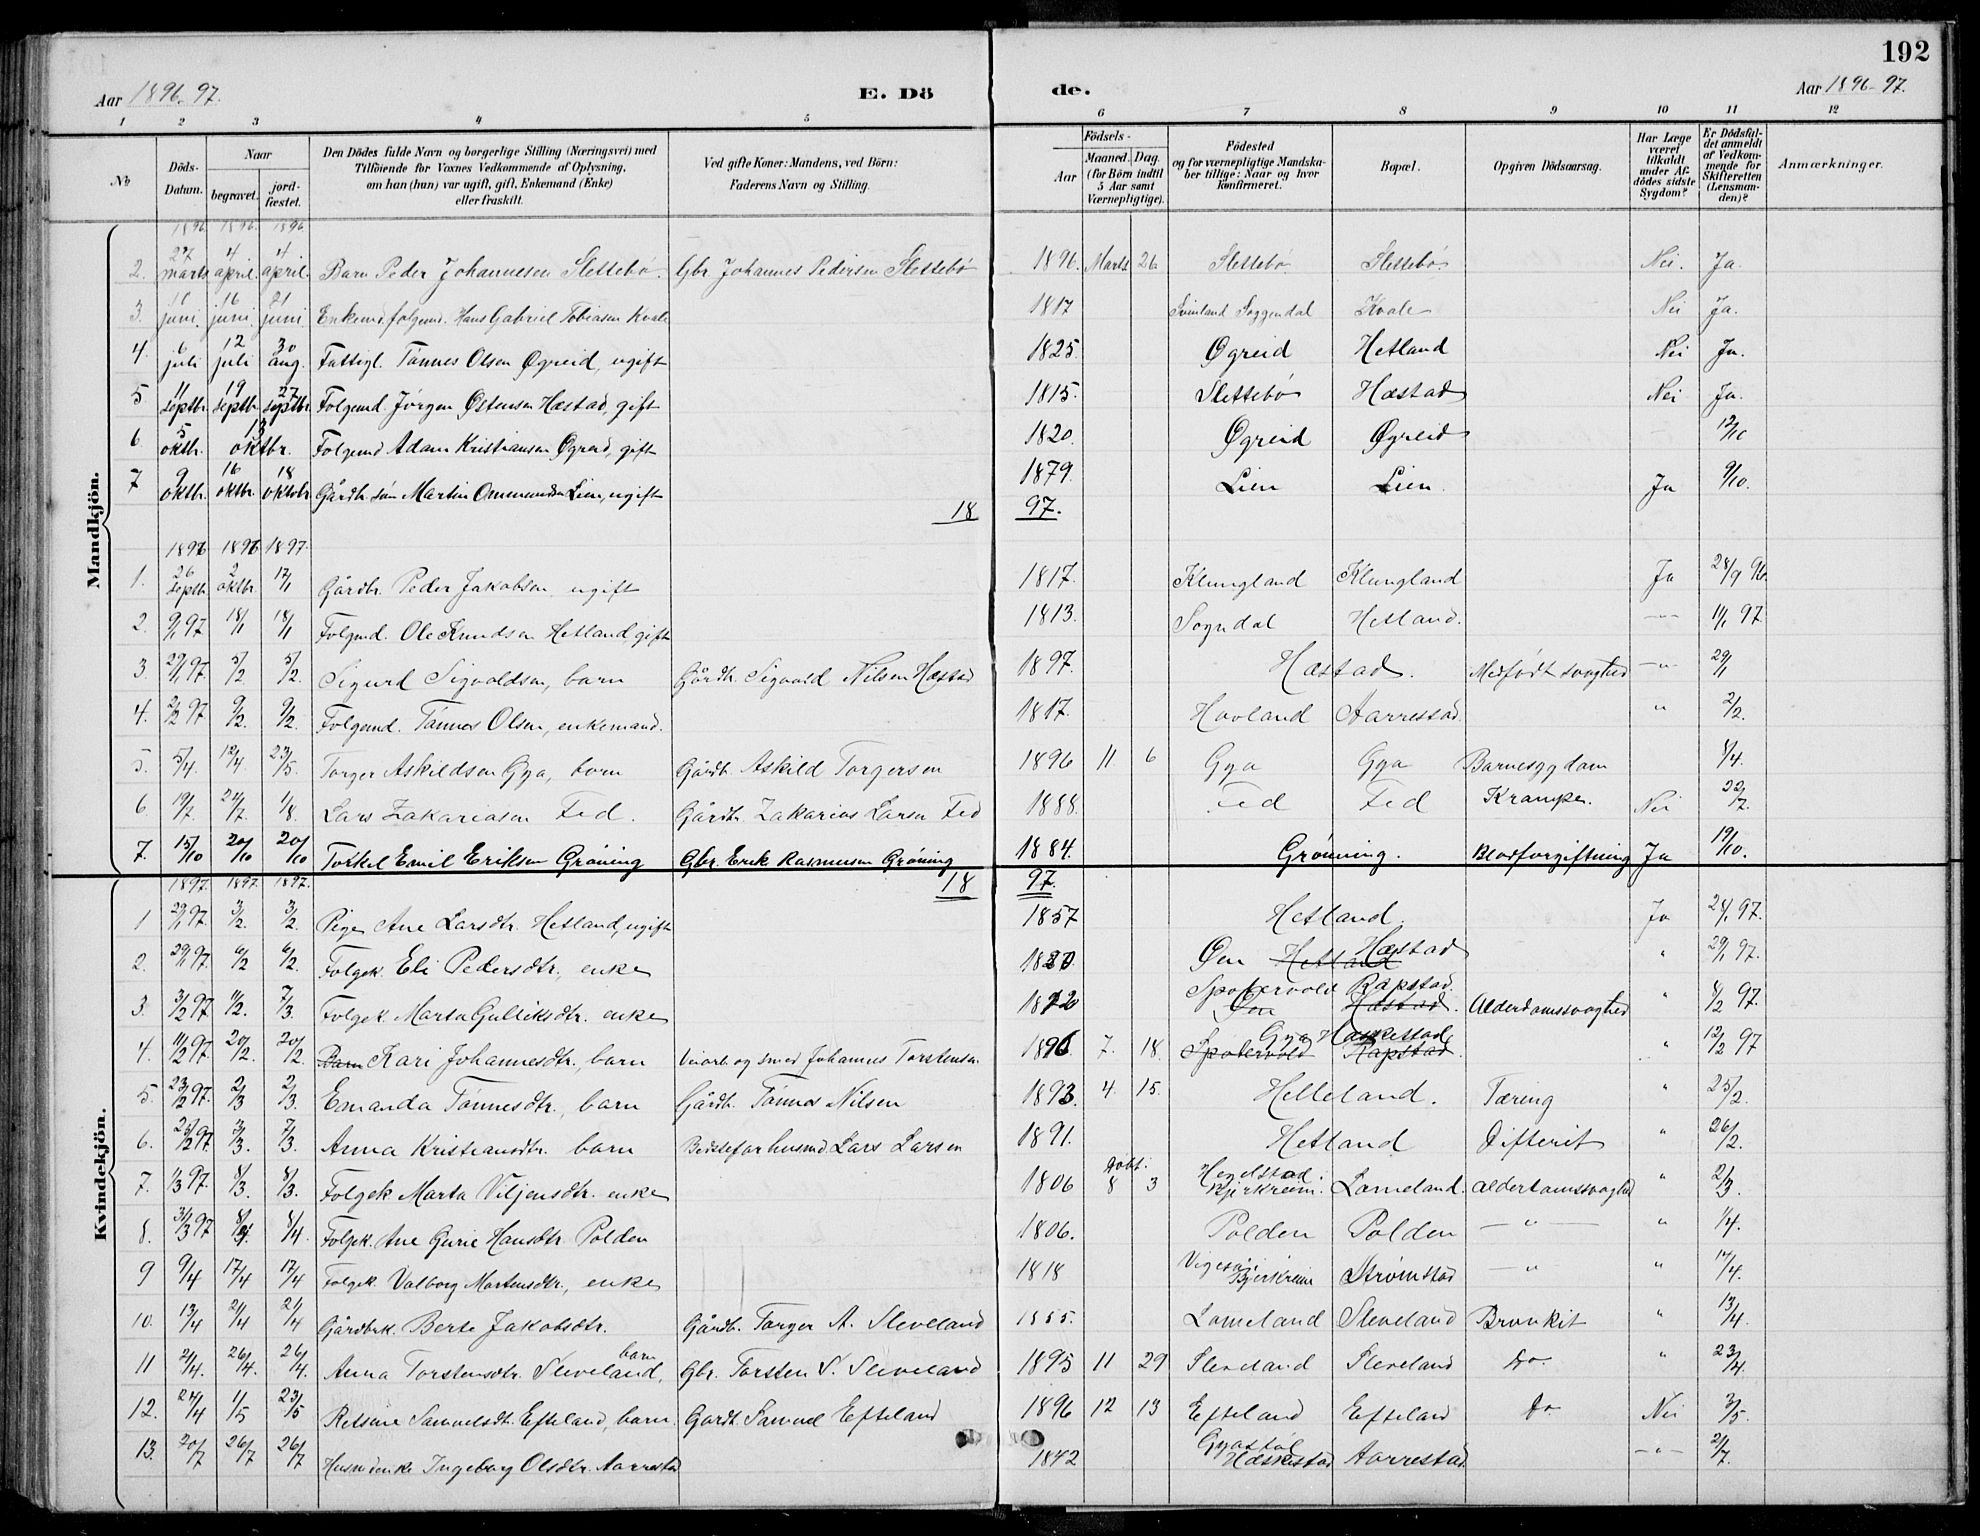 192
Aar 1896-97. E. Dö de. Aar 1896-97.
1 2 3 4 5 6 7 8 9 10 11 12
No
Döds-Datum.
Naar
begravet.
jordfæstet.
Den Dödes fulde Navn og borgerlige Stilling (Næringsvei) med
Tilföiende for Voxnes Vedkommende af Oplysning,
om han (hun) var ugift, gift, Enkemand (Enke)
eller fraskilt.
Ved gifte Koner: Mandens, ved Börn:
Faderens Navn og Stilling.
Födsels-
Aar
Maaned. Dag.
(for Börn indtil
5 Aar samt
Værnepligtige).
Födested
og for værnepligtige Mandska-
ber tillige: Naar og hvor
konfirmeret.
Bopæl.
Opgiven Dödsaarsag.
Har Læge
været
tilkaldt
under Af-
dödes sidste
Sygdom?
Er Dödsfal-
det anmeldt
af Vedkom-
mende for
Skifteretten
(Lensman-
den)?
Anmærkninger.
Mandkjön.
1896 1896. 1896
2. 27 marts 4 april. 4 april. Barn Peder Johannesen Slettebö. Gbr. Johannes Pedersen Slettebö 1896. Marts 26 Slettebö Slettebö. Nei. Ja.
3. juni. 16 juni. 21 juni Enkemd. folgemd. Hans Gabriel Tobiasen Kvale 1817 Soggendal Kvale Nei Ja.
4. 6 juli 12 juli 30 aug. Fattigl. Tönnes Olsen Øgreid, ugift 1825. Øgreid Hetland Nei Ja.
5 11 septbr. 19 septbr. 27 septbr. Folgemd. Jörgen Østensen Hæstad, gift 1815. Slettebö Hæstad Nei Ja.
6. 5 oktbr. 13 oktbr. Folgemd Adam Kristiansen Øgreid, gift 1820. Øgreid Øgreid 12/10
7 9 oktbr. 16 oktbr. 18 oktobr Gårdbr. sön Martin Ommundsen Lien, ugift 1879. Lien Lien. Ja 9/10.
18 97.
1896 1896 1897.
1. 26 septb 2 oktbr. 17/1 Gårdbr. Peder Jakobsen ugift 1817. Klungland Klungland Ja 28/9 96.
2. 9/1 97 18/1 18/1 Folgemd. Ole Knudsen Hetland, gift 1813. Sogndal Hetland. —"— 11/1 97.
3 29/1 97. 5/2 5/2. Sigurd Sigvaldsen, barn Gårdb. Sigvald Nilsen Hæstad 1897. Hæstad. Medfödt svaghed —"— 29/1
4. 2/2 97 9/2. 9/2. Folgemd. Tönnes Olsen, enkemand. 1817. Hovland Aarrestad. " 2/2.
5. 5/4. 12/4. 23/5. Torger Askildsen Gya, barn Gårdb. Askild Torgersen 1896 11 6 Gya Gya Barnesygdom 8/4.
6 19/7. 24/7. 1/8. Lars Zakariasen Fed. Gårdbr. Zakarias Larsen Fed 1888. Fed Fed Krampe. Nei 22/7.
7. 15/10 20/10 20/10 Torkel Emil Eriksen Gröning Gbr. Erik Rasmussen Gröning 1884. Grönning. Blodforgiftning Ja 19/10.
Kvindekjön.
1897. 1897. 1897. 18 97.
1 29/1 97. 3/2. 3/2. Pige Ane Larsdtr. Hetland, ugift 1857 Hetland. Ja 24/1 97.
2. 29/1 97. 6/2 6/2. Folgek. Eli Pedersdtr., enke 1820. Øen Hetland Hæstad " 29/1 97.
3. 3/2 97 11/2. 7/3 Folgek. Marta Gulliksdtr. enke 18 20 Spotervold Øen Rapstad. Hæstad. Alderdomssvaghed " 8/2 97.
4. 11/2 97. 20/2. 20/2 Barn Kari Johannesdtr., barn og smed Johannes Torstensen 1896. 7. 18. Gya Spotervold Hæskestad Rapstad. " 12/2 97
5. 23/2 97. 2/3 2/3. Emanda Tönnesdtr., barn Gårdb. Tönnes Nilsen 1893. 4. 15. Helleland. Tæring " 25/2.
6. 25/2 97. 3/3. 7/3. Anna Kristiansdtr. barn Bedstefar husmd Lars Larsen 1891. Hetland Difterit " 26/2.
7. 1/3 97. 8/3. 8/3. Folgek Marta Viljensdtr. enke 1806 döbt: 8 3 Hegelstad. Bjerkreim. Lomeland. Alderdomssvaghed " 2/3.
8. 31/3 97 8/4. 8/4. Folgek. Ane Gurie Hansdtr. Polden 1806. Polden Polden —"— " 1/4.
9 9/4 17/4 17/4 Folgek. Valborg Martensdtr., enke 1818 Bjerkreim Strömstad —"— " /4.
10. 13/4 21/4 21/4 Gårdbrk. Berte Jakobsdtr. Gårdb. Torger A. Sleveland 1855. Lomeland Sleveland Bronkit " 13/4.
11 21/4. 26/4. 26/4. Anna Torstensdtr. Sleveland, barn Gbr. Torsten T. Sleveland 1895 11 29 Sleveland Sleveland Do. " 23/4.
12. 24/4 1/5 23/5 Retsine Samuelsdt. Efteland, barn. Gardb. Samuel Efteland 1896 12 13 Efteland Efteland Do. Nei 3/5.
13. 20/7 26/7 26/7 Husm.denke Ingeborg Olsdtr. Aarrestad 1842 Gyastöl Hæskestad Aarrestad. —"— 21/7.